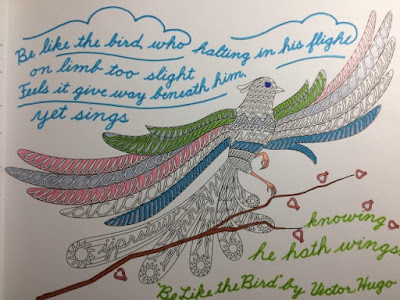 Be like the bird, who halting in his flight
on limb too slight
Feels it give way beneath him,
yet sings
knowing
he hath wings.
"Be Like the Bird" by Victor Hugo